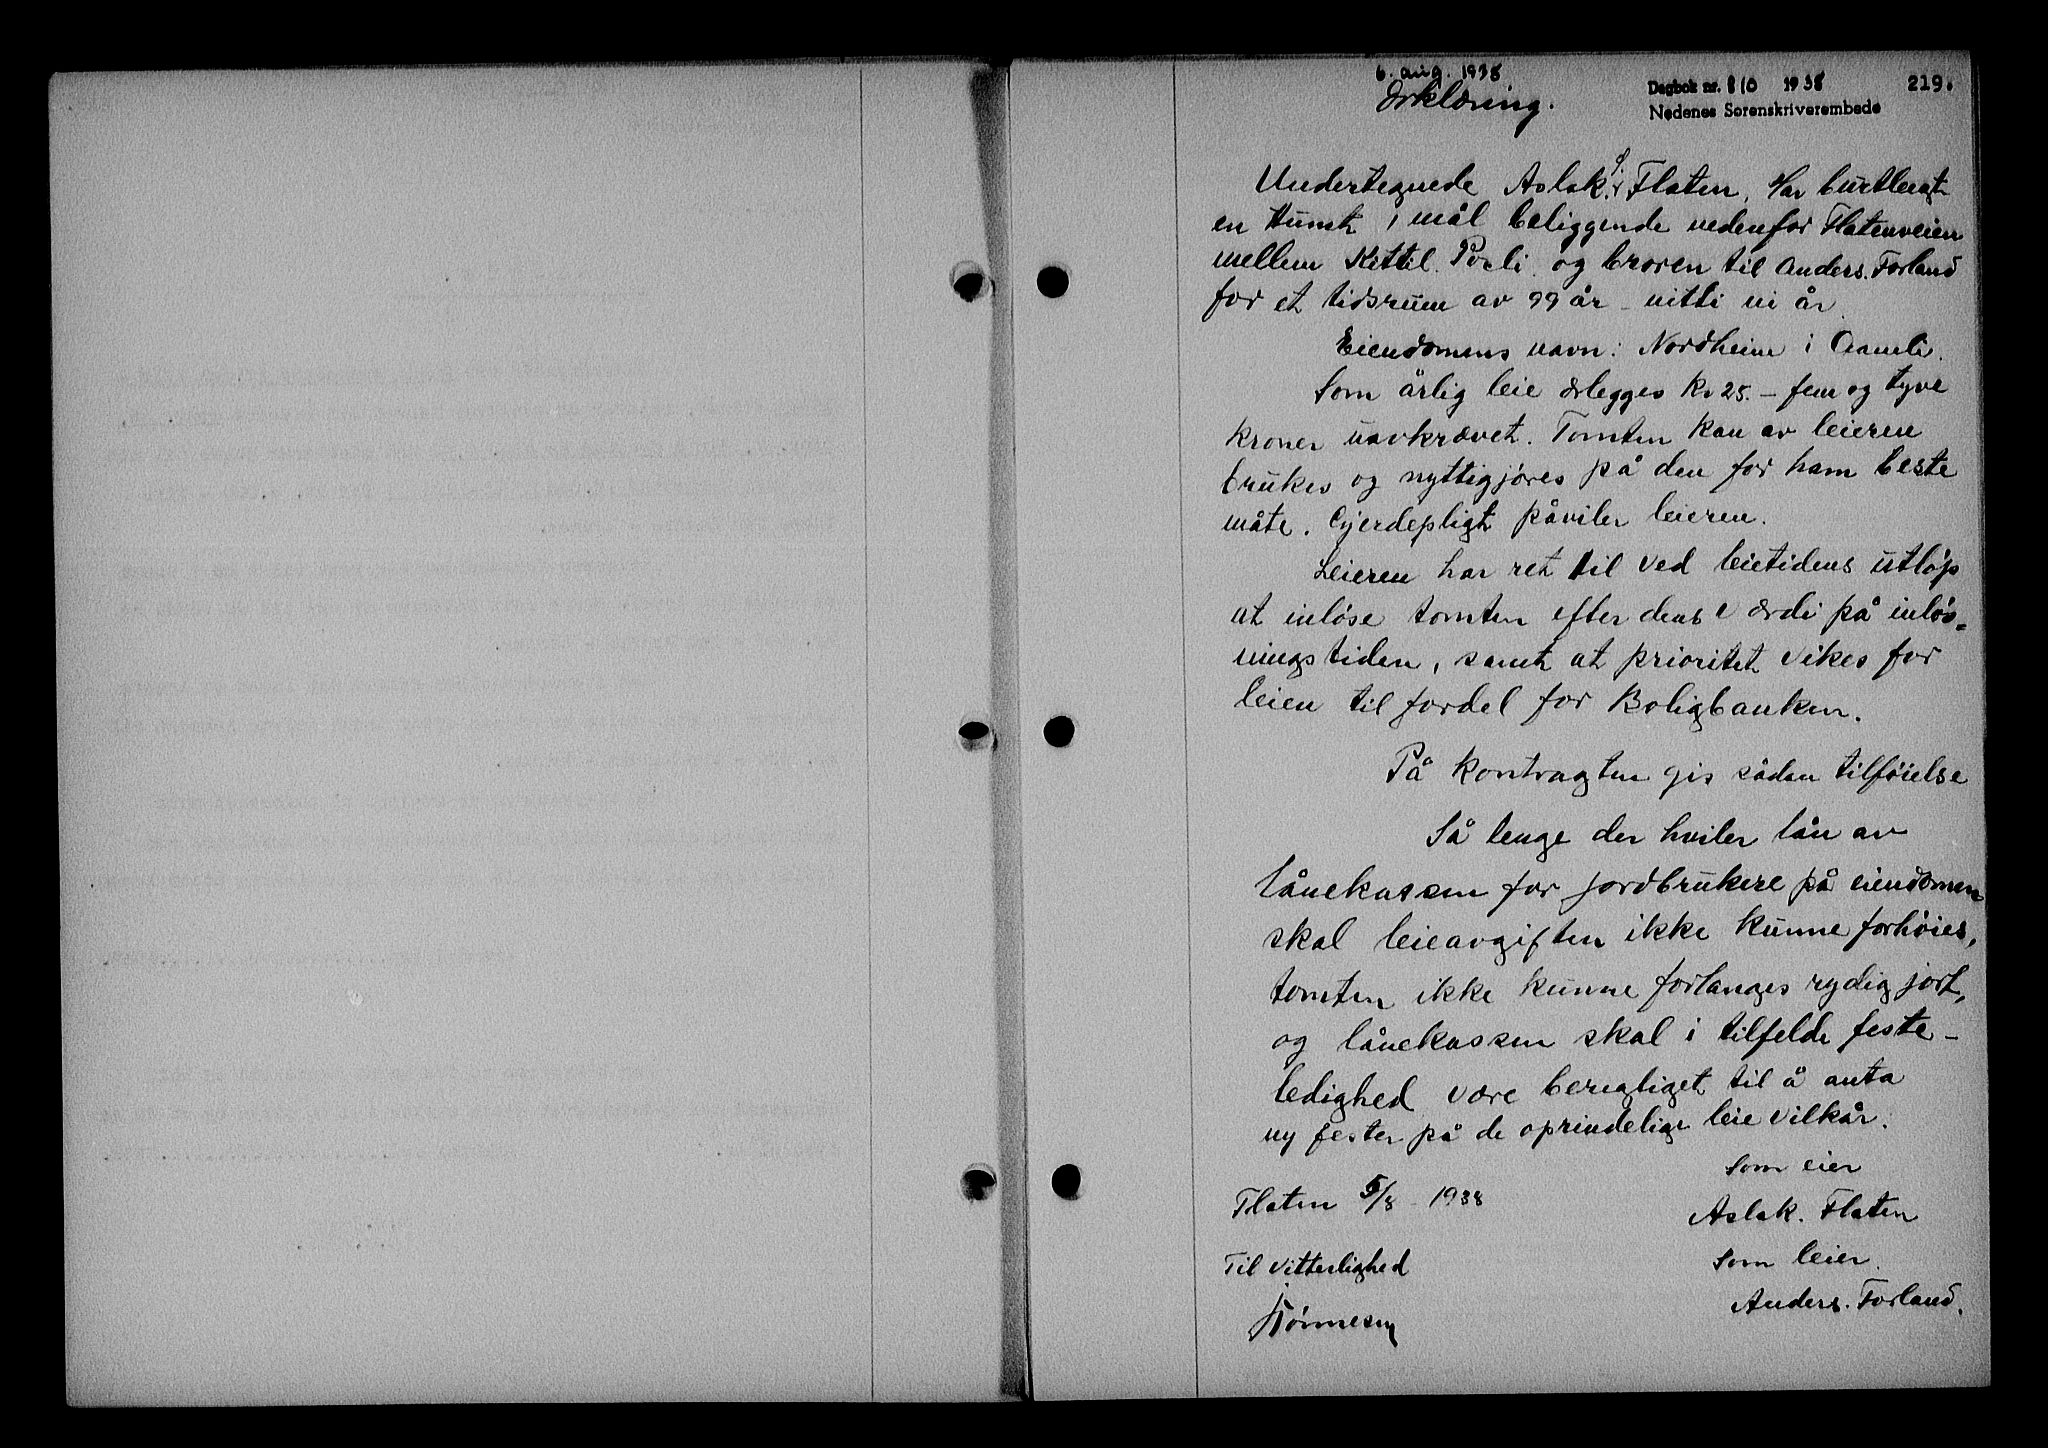 6. aug. 1938
Erklæring.
Dagbok nr. 810 1938
Nedenes Sorenskriverembede
219.
Undertegnede Aslak Flaten, har burtleigt
en tomt 1 mål beliggende nedenfor Flatenveien
mellem Kittil og broren til Anders. Forland
for et tidsrum av 99 år - nitti ni år.
Eiendomens navn: Nordheim i Aamli.
Som årlig leie erlegges Kr 25. - fem og tyve
kroner uavkrævet. Tomten kan av leieren
brukes og nyttigjøres på den for ham beste
måte. Gjerdepligt påviler leieren.
Leieren har ret til ved leietidens utløp
at inløse tomten efter dens værdi på inløs=
ningstiden, samt at prioritet vikes for
leien til fordel for Boligbanken.
På kontragten gis sådan tilføielse
Så lenge der hviler lån av
lånekassen for jordbrukere på eiendomen
skal leieavgiften ikke kunne forhøies,
tomten ikke kunne forlanges rydiggjort,
og lånekassen skal i tilfelde feste-
ledighed være beregtiget til å anta
ny fester på de oprindelige leie vilkår.
Som eier
Flaten 5/8 - 1938
Aslak. Flaten
Til vitterlighed
Som leier.
Anders. Forland.